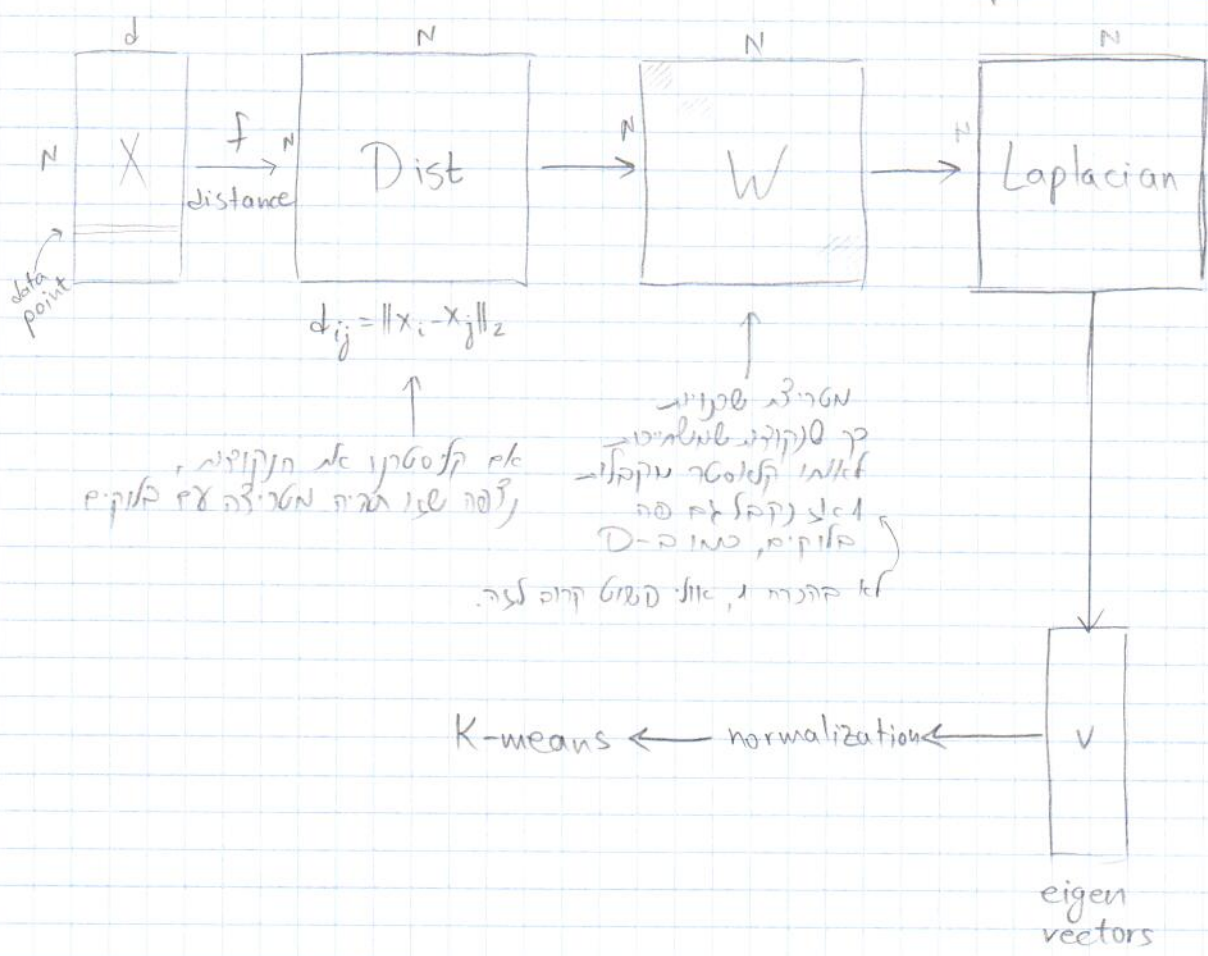 d
N
N
N
N
X
f
distance
N
Dist
N
W
N
Laplacian
data
point
d_{ij} = ||x_i - x_j||_2
אם קליסטרנו את הנקודות,
נצפה שזו תהיה מטריצה עם בלוקים
מטריצת שכנויות
כך שנקודות שמשתייכות
לאותו קלאסטר מקבלות
1 ואז נקבל גם פה
בלוקים, כמו ב-D
לא בהכרח 1, אולי פשוט קרוב לזה.
K-means ← normalization ← V
eigen
vectors